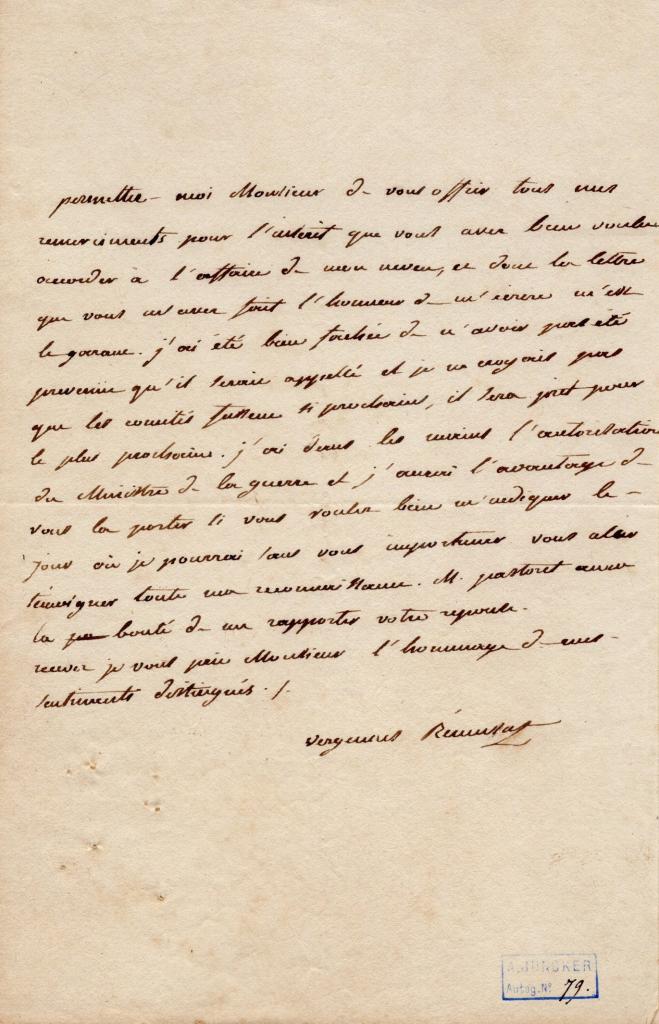 permettez-moi Monsieur de vous offrir tous mes
remerciments pour l'intérêt que vous avez bien voulu
accorder à l'affaire de mon neveu, et dont la lettre
que vous m'avez fait l'honneur de m'écrire m'est
le garant. j'ai été bien fachée de n'avoir pas été
prevenue qu'il serait appellé et je ne croyais pas
que les comités fussent si prochains, il sera pret pour
le plus prochain. j'ai dans les mains l'autorisation
du Ministre de la guerre et j'aurai l'avantage de
vous la porter si vous voulez bien m'indiquer le
jour où je pourrai sans vous importuner vous aller
temoigner toute ma reconnaissance. M. pastoret aura
la bonté de me rapporter votre reponse.
recevez je vous prie Monsieur l'hommage de mes
sentiments distingués. /.
vergennes Rémusat
A. JUNCKER
Autog. No 79.